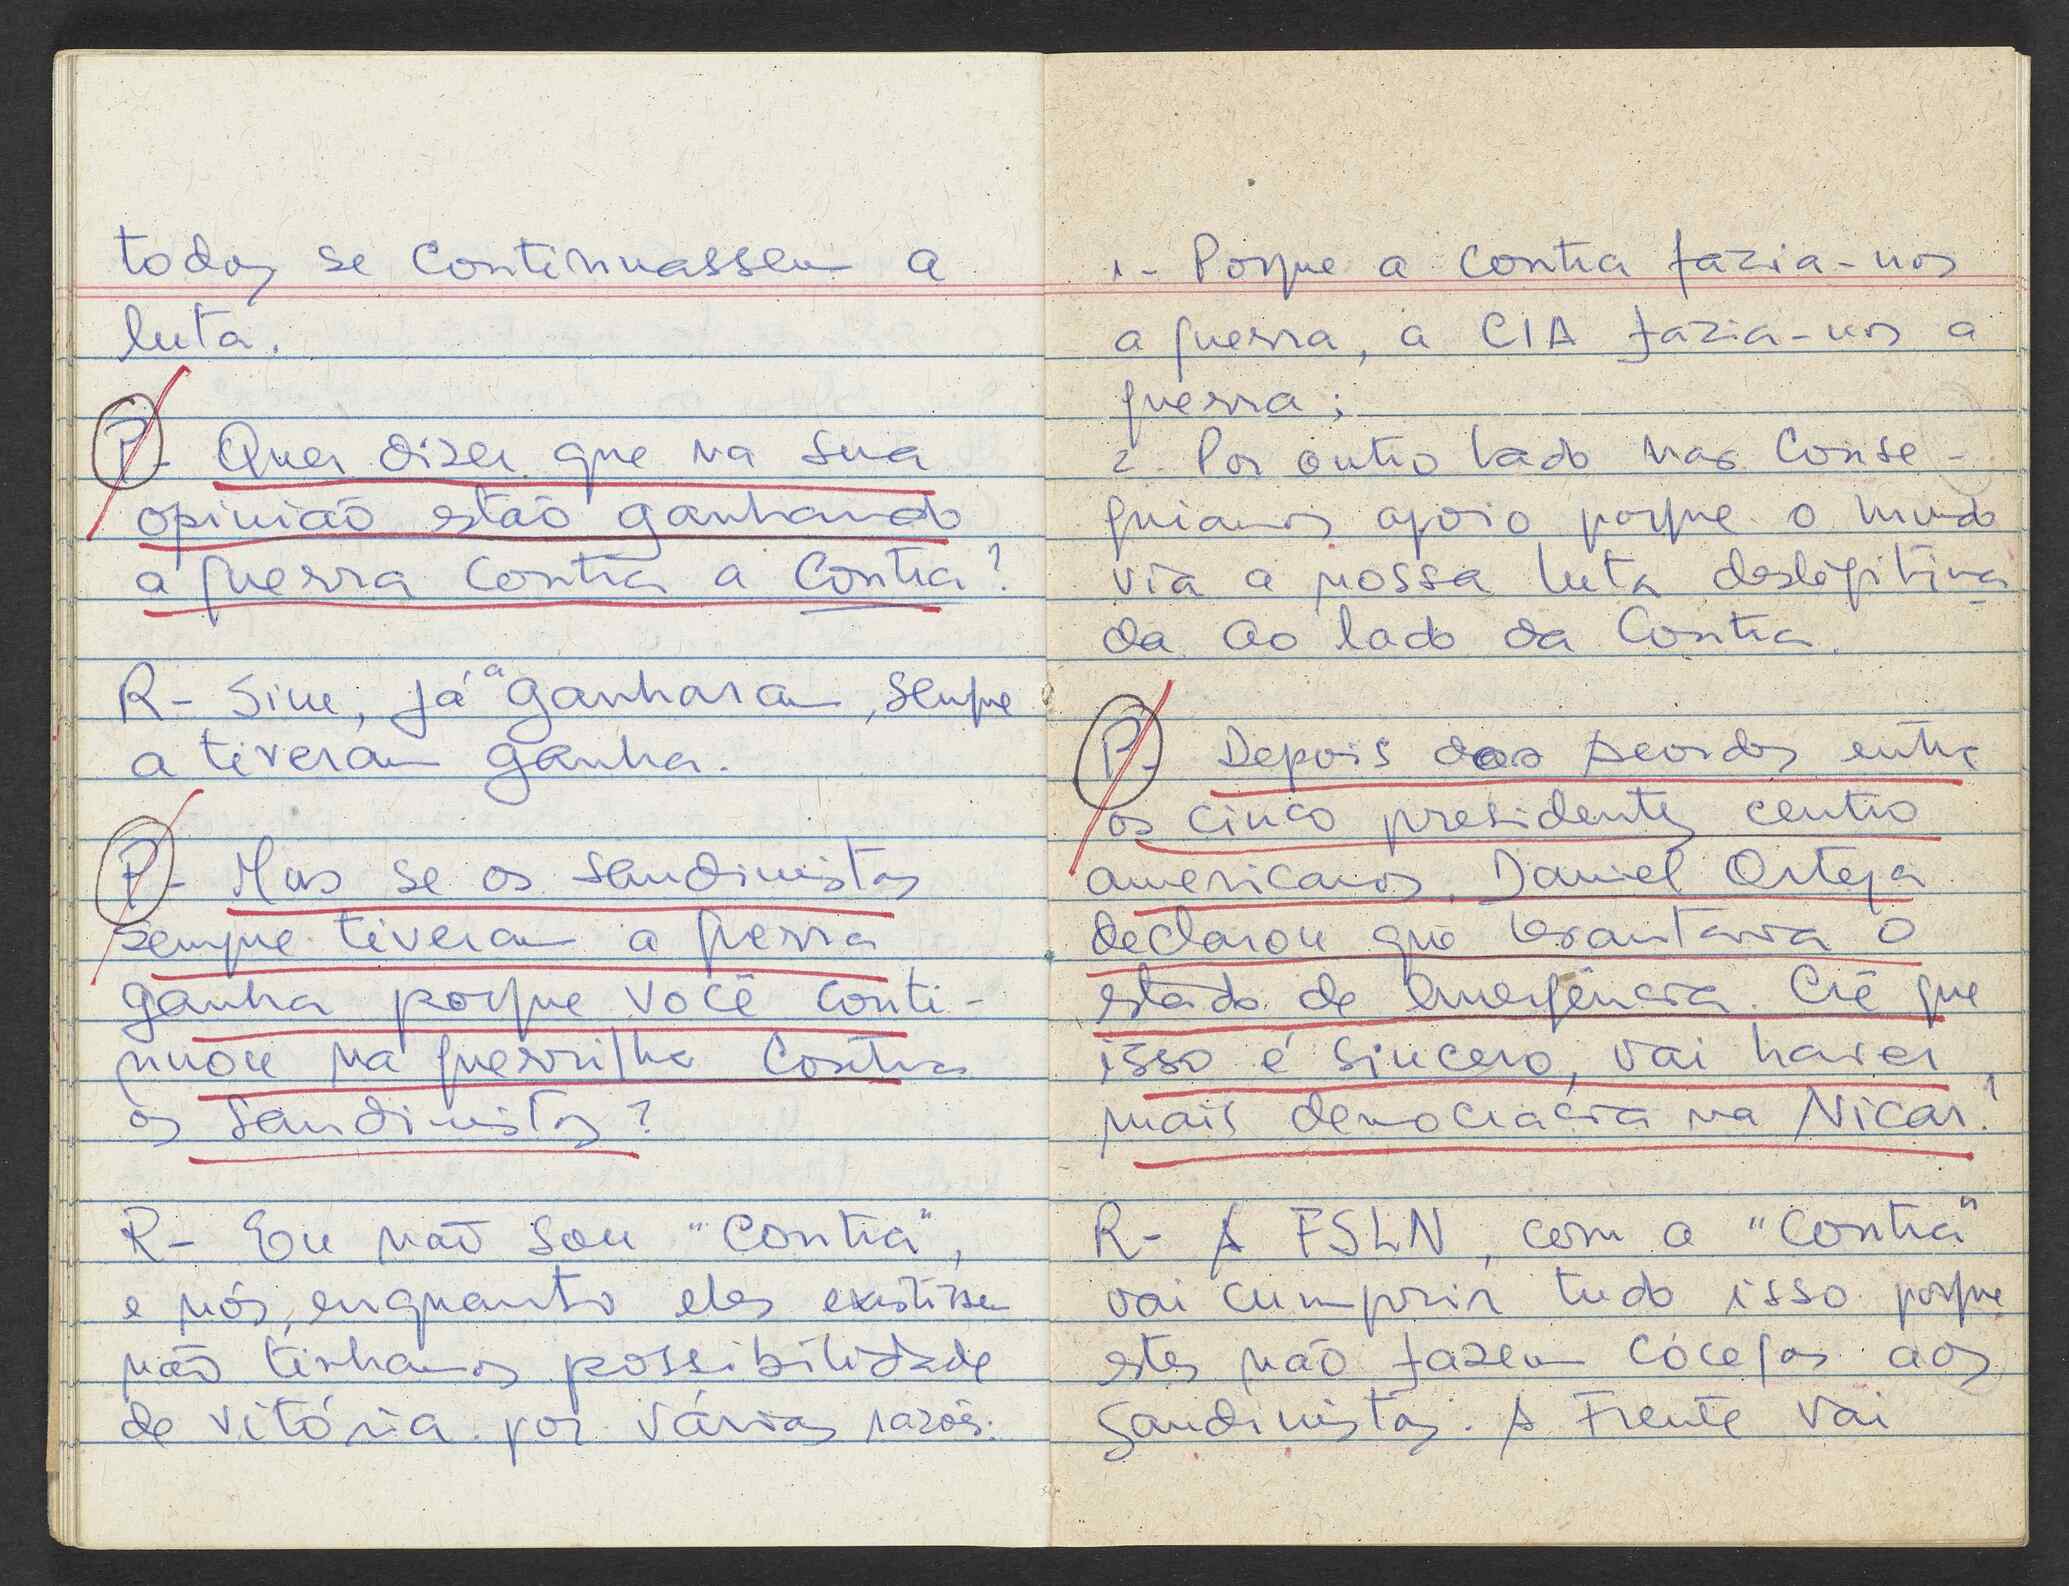 todos se continuassem a
luta.
P- Quer dizer que na sua
opinião estão ganhando
a guerra contra a Contra?
R- Sim, já a ganharam, sempre
a tiveram ganha.
P- Mas se os sandinistas
sempre tiveram a guerra
ganha porque você conti-
nuou na guerrilha contra
os sandinistas?
R- Eu não sou "contra",
e nós, enquanto eles existissem
não tinhamos possibilidade
de vitória por várias razões.
1- Porque a contra fazia-nos
a guerra, a CIA fazia-nos a
guerra;
2- Por outro lado nao conse-
guiamos apoio porque o mundo
via a nossa luta deslegitima
da ao lado da Contra.
P- Depois dos Acordos entre
os cinco presidentes centro
americanos, Daniel Ortega
declarou que levantava o
estado de emergência. Crê que
isso é sincero, vai haver
mais democracia na Nicar.?
R- A FSLN, com a "contra"
vai cumprir tudo isso porque
estes não fazem cócegas aos
Sandinistas. A Frente vai